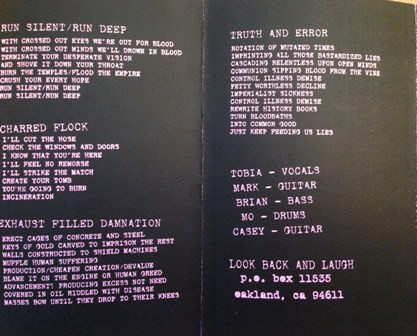 RUN SILENT/RUN DEEP
WITH CROSSED OUT EYES WE'RE OUT FOR BLOOD
WITH CROSSED OUT MINDS WE'LL DROWN IN BLOOD
TERMINATE YOUR DESPERATE VISION
AND SHOVE IT DOWN YOUR THROAT
BURN THE TEMPLES/FLOOD THE EMPIRE
CRUSH YOUR EVERY HOPE
RUN SILENT/RUN DEEP
RUN SILENT/RUN DEEP
CHARRED FLOCK
I'LL CUT THE HOSE
CHECK THE WINDOWS AND DOORS
I KNOW THAT YOU'RE HERE
I'LL FEEL NO REMORSE
I'LL STRIKE THE MATCH
CREATE YOUR TOMB
YOU'RE GOING TO BURN
INCINERATION
EXHAUST FILLED DAMNATION
ERECT CAGES OF CONCRETE AND STEEL
KEYS OF GOLD CARVED TO IMPRISON THE REST
WALLS CONSTRUCTED TO SHIELD MACHINES
MUFFLE HUMAN SUFFERING
PRODUCTION/CHEAPEN CREATION/DEVALUE
BLAME IT ON THE ENGINE OR HUMAN GREED
ADVANCEMENT? PRODUCING EXCESS NOT NEED
COVERED IN OIL RIDDLED WITH DISEASE
MASSES BOW UNTIL THEY DROP TO THEIR KNEES
TRUTH AND ERROR
ROTATION OF MUTATED TIMES
IMPRINTING ALL THOSE BASTARDIZED LIES
CASCADING RELENTLESS UPON OPEN MINDS
COMMUNION SIPPING BLOOD FROM THE VINE
CONTROL ILLNESS DEMISE
PETTY WORTHLESS DECLINE
IMPERIALIST SICKNESS
CONTROL ILLNESS DEMISE
REWRITE HISTORY BOOKS
TURN BLOODBATHS
INTO COMMON GOOD
JUST KEEP FEEDING US LIES
TOBIA – VOCALS
MARK – GUITAR
BRIAN – BASS
MO – DRUMS
CASEY – GUITAR
LOOK BACK AND LAUGH
p.o. box 11535
oakland, ca 94611